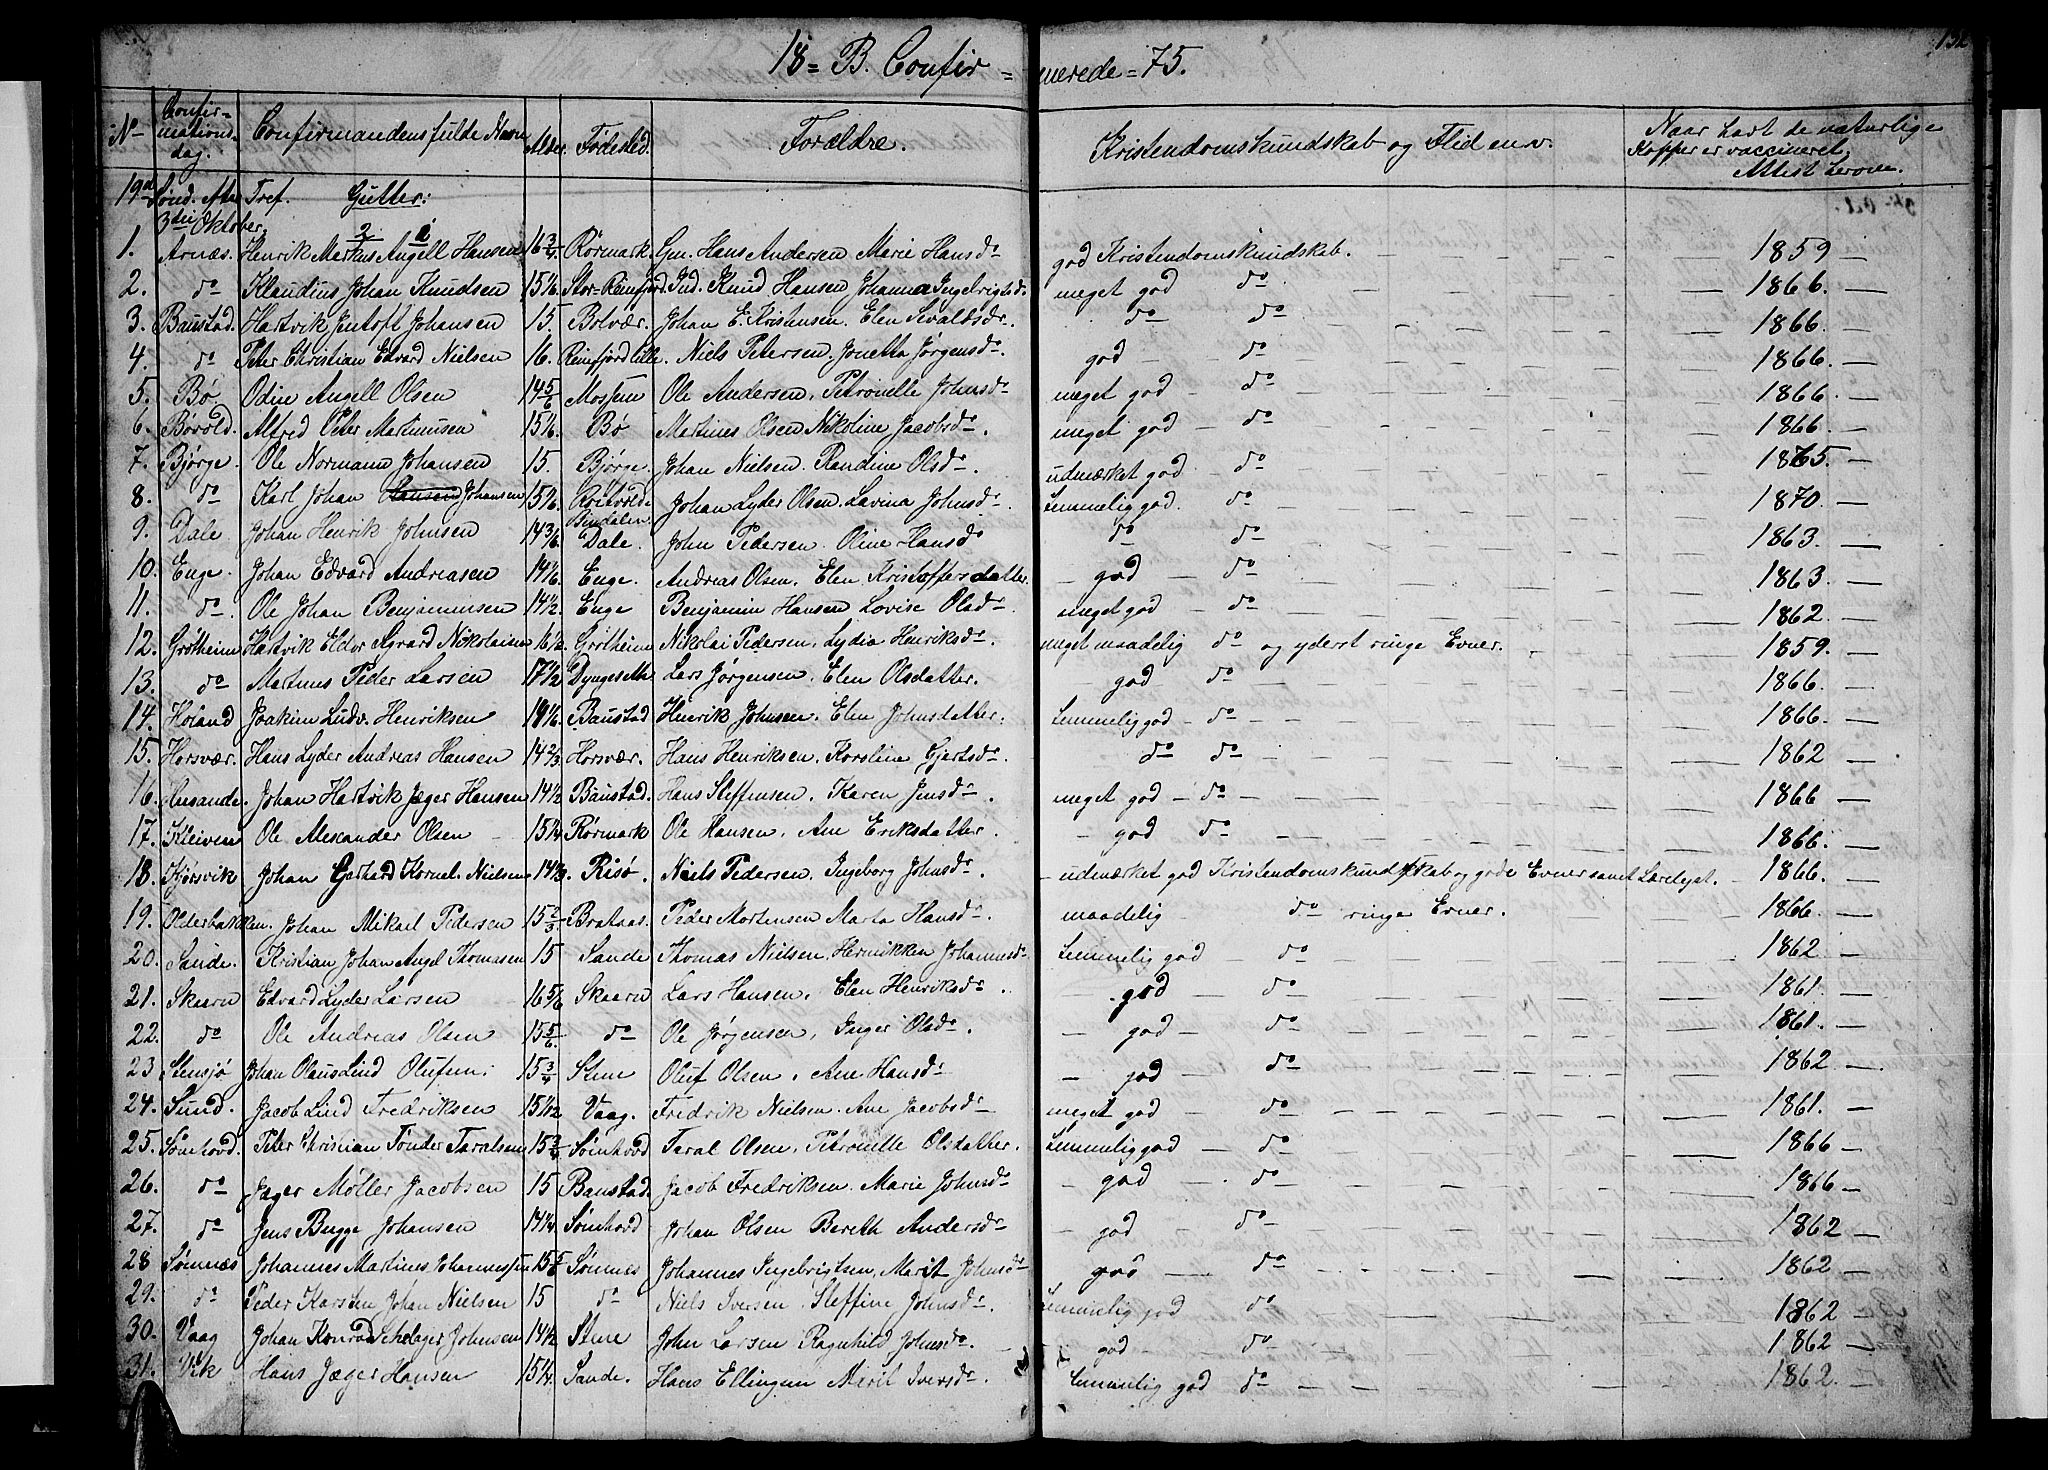 152
18 = B. Confir = merede = 75.
No Confirmationsdag. Confirmandens fulde Navn Alder. Fødested. Forældre. Kristendomskundskab og Flid m. v. Naar havt de naturlige Kopper er vaccineret, Attest herom.
19de Sønd. efter Tref. Gutter:
3die Oktober.
1. Arnæs. Henrik Markus Angell Hansen 16 3/4 Rørmark. Gm. Hans Andersen Marie Hansdr god Kristendomskundskab. 1859
2. do Klaudius Johan Knudsen 15 1/6 Stor-Reinfjord. Ind. Knud Hansen Johanna Ingebrigtsd. meget god do 1866.
3. Baustad. Hartvik Jentoft Johansen 15. Bolvær. Johan E. Kristensen. Elen Sivaldsdr. do do 1866.
4. do Peter Christian Edvard Nielsen 16. Reinfjord lille. Niels Petersen. Jonetta Jørgensdr. god do 1866.
5. Bø. Odin Angell Olsen 14 5/6 Mosheim Ole Andersen. Petronille Johnsdr meget god do 1866.
6. Børold. Alfred Peter Martinusen 15 1/6 Bø Martines Olsen Nikoline Jacobsdr. meget god do 1866.
7. Bjørge. Ole Normann Johansen 15. Bjørge. Johan Nielsen. Randine Olsdr. udmærket god do 1865.
8. do Karl Johan Hansen Johansen 15 1/6. Johan Lyder Olsen. Lavina Johnsdr. temmelig god. do 1870.
9. Dale. Johan Henrik Johnsen 14 3/6 Bindalen Dale. John Pedersen. Oline Hansdr do do 1863.
10. Enge. Johan Edvard Andreasen 14 1/6. Enge. Andreas Olsen. Elen Kristoffersdatter. god do 1863.
11. do. Ole Johan Benjaminsen 14 1/2. Enge Benjamin Hansen Lovise Olsdr. meget god do 1862
12. Grøtheim Hartvik Eldor Agvard Nikolaisen 16 1/2 Grøtheim Nikolai Pedersen, Lydia Henriksdr. meget maadelig do og yderst ringe Evner. 1859.
13. do Martines Peder Larsen 17 1/2 Dyngeseth Lars Jørgensen. Elen Olsdatter. god do 1866.
14. Holand Joakim Ludv. Henriksen 14 1/6. Baustad Henrik Johnsen. Elen Johnsdatter. temmelig god do 1866.
15. Horsvær. Hans Lyder Andreas Hansen 14 2/3 Horsvær. Hans Henriksen. Karoline Gjertsdr. do do 1862
16. Husande. Johan Hartvik Jæger Hansen 14 1/2 Baustad. Hans Steffensen. Karen Jensdr. meget god do 1866
17. Kleiven Ole Alexander Olsen 15 1/4 Rørmark Ole Hansen. Ane Eriksdatter. god do 1866.
18. Kjørsvik Johan Gerhard Kornel. Nielsen Risø. Niels Pedersen. Ingeborg Johnsdr. udmærket god Kristendomskundskab og gode Evner samt Lærelyst. 1866.
19. Olderbakken. Johan Mikael Pedersen 15 2/3 Brataas. Peder Mortensen Marta Hansdr. maadelig do ringe Evner. 1866.
20. Sande. Kristian Johan Angel Thomasen 15 Sande Thomas Nielsen. Hernikken Johannesdr. temmelig god do 1862.
21. Skaarn Edvard Lyder Larsen 16 5/6 Skaarn Lars Hansen. Elen Henriksdr. god do 1861.
22. do Ole Andreas Olsen 15 5/6. do Ole Jørgensen. Inger Olsdr. god do 1861.
23 Stensjø Johan Olaus Lind Olufsen. 15 3/4 Stene Oluf Olsen. Ane Hansdr god do 1862
24. Sund. Jacob Lind Fredriksen 15 1/12 Vaag. Fredrik Nielsen. Ane Jacobsdr meget god do 1861.
25. Sømhovd. Peter Christian Tønder Taralsen 15 3/4 Sømhovd Taral Olsen. Petronille Olsdatter. temmelig god do 1866
26. do Jæger Møller Jacobsen 15 Baustad. Jacob Fredriksen. Marie Johnsdr god do 1866
27. do Jens Bugge Johansen 14 1/4 Sømhovd Johan Olsen Bereth Andersdr god do 1862
28 Sømnæs Johannes Martines Johannessen 15 5/6 Sømnes Johannes Ingebrigtsen. Marit Johnsdr god do 1862
29. do Peder Karsten Johan Nielsen 15 do Niels Iversen. Steffine Johnsdr. temmelig god do 1862
30. Vaag Johan Konrad Schelager Johnsen 14 1/2 Stene John Larsen Ragnhild Johnsdr. god do 1862
31. Vik Hans Jæger Hansen 15 1/4. Sande. Hans Ellingsen Marit Iversdr. temmelig god do 1862.